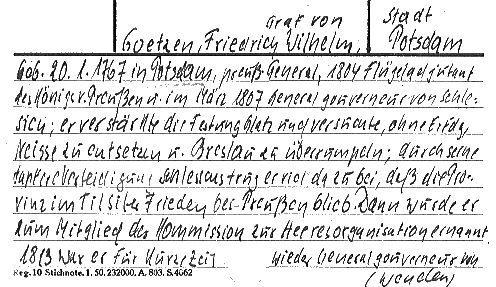 Graf von
Stadt
Goetzen, Friedrich Wilhelm,
Potsdam
Geb. 20. 1. 1767 in Potsdam, preuß. General, 1804 Flügeladjutant
des Königs v. Preußen u. im März 1807 Generalgouverneur von Schle-
sien; er verstärkte die Festung Glatz und versuchte, ohne Erfolg,
Neisse zu entsetzen u. Breslau zu überrumpeln; durch seine
tapfere Verteidigung Schlesiens trug er viel dazu bei, daß die Pro-
vinz im Tilsiter Frieden bei Preußen blieb. Dann wurde er
zum Mitglied der Kommission zur Heeresorganisation ernannt
1813 war er für kurze Zeit wieder Generalgouverneur von
Reg. 10 Stichnote. 1. 50. 232000. A. 803. S. 4062
(wenden)